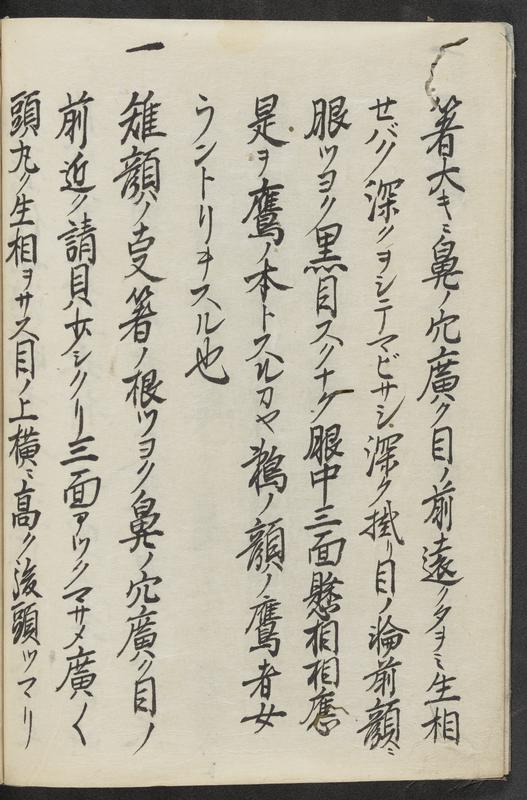 箸大キニ鼻ノ穴廣ク目ノ前遠クタヲミ生相
セバク深クヲシテマビサシ深ク掛リ目ノ淪前顔ニ
眼ツヨク黒目スクナク眼中三面懸相相應
是ヲ鷹ノ本トスル乃ヤ鵜ノ顔ノ鷹者女
ウントリキスル也
一 雉顔ノ支箸ノ根ツヨク鼻ノ穴廣ク目ノ
前近ク請貝女シクリ三面アツクマサメ廣ク
頭丸ク生相ヲサス目ノ上横ニ高ク後頭ツマリ